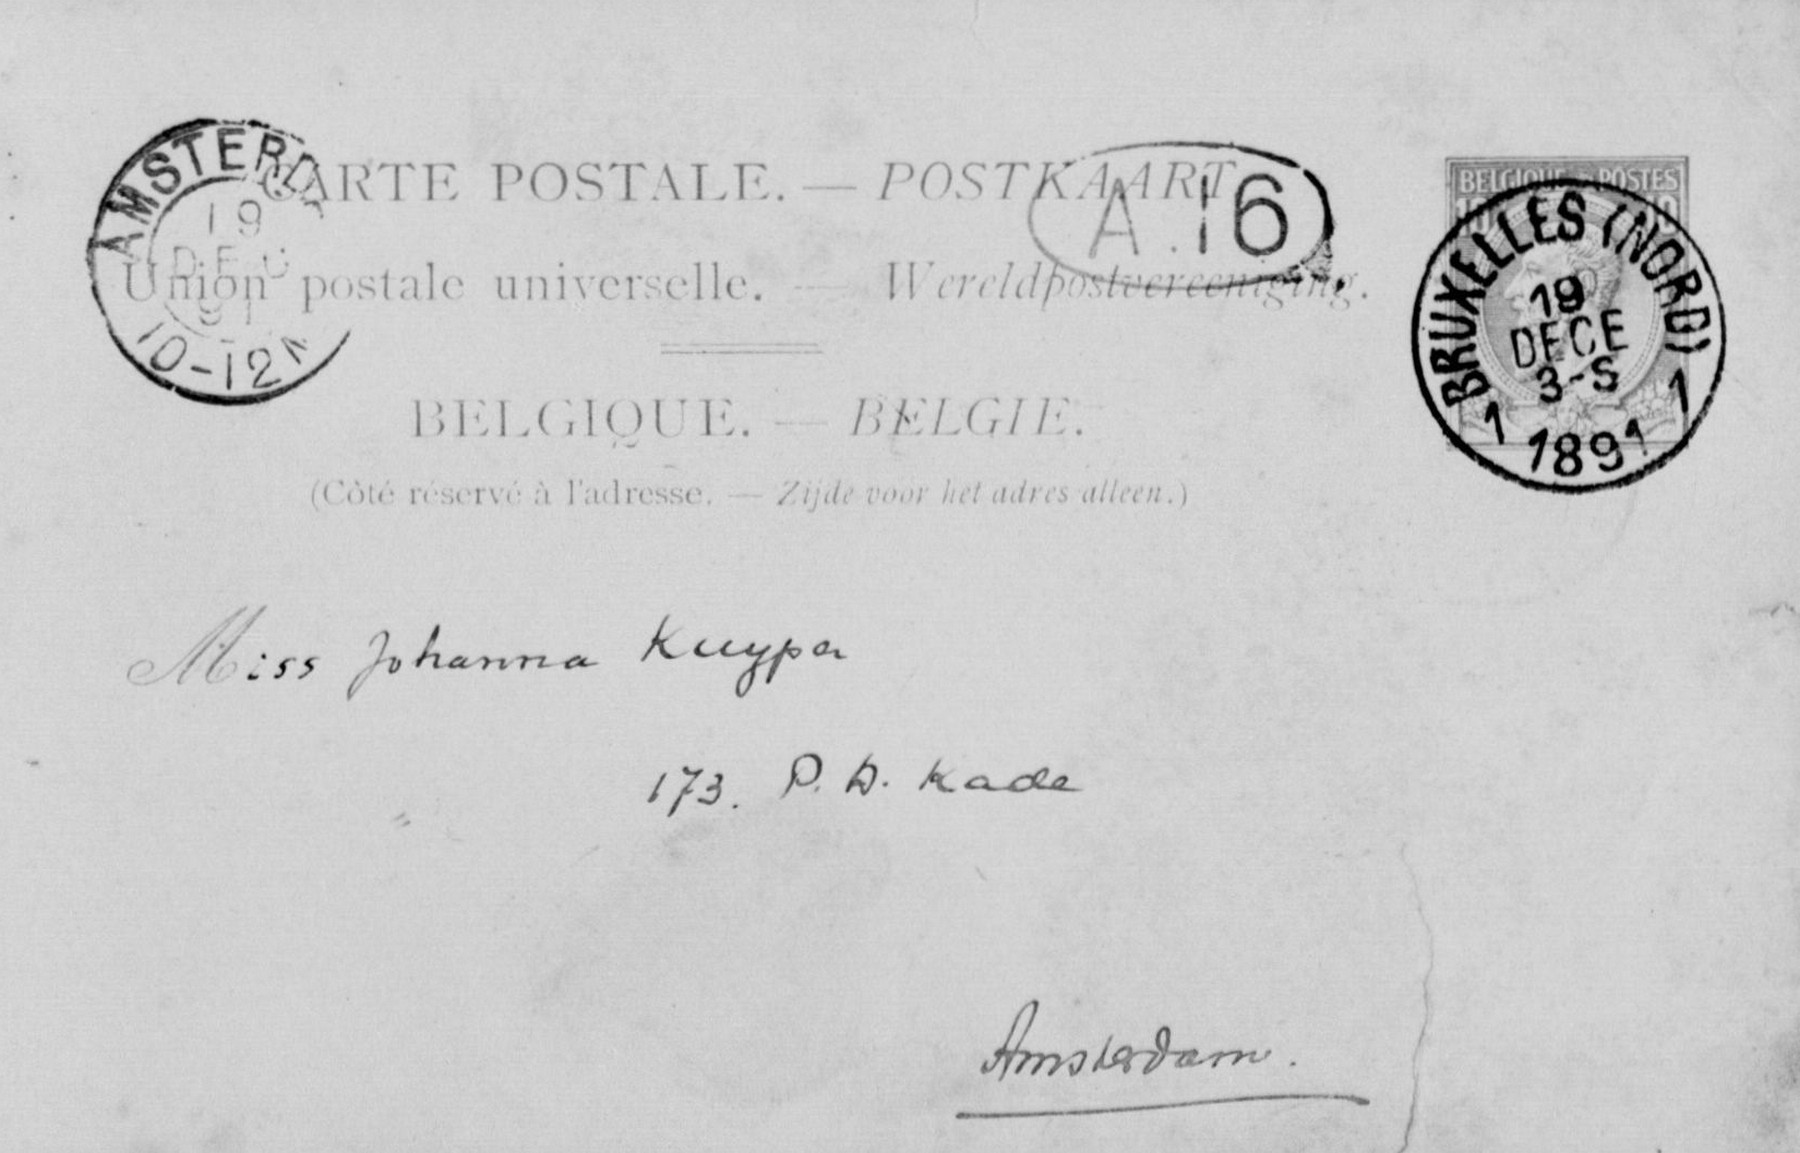 AMSTERD
19
DEC
91
10-12N
CARTE POSTALE. — POSTKAART
A.16
Union postale universelle. — Wereldpostvereeniging.
BELGIQUE. — BELGIE.
(Côté réservé à l'adresse. — Zijde voor het adres alleen.)
BELGIQUE POSTES
10 10
BRUXELLES (NORD)
19
DECE
3-S
1 1891 1
Miss Johanna Kuyper
173. P. D. Kade
Amsterdam.